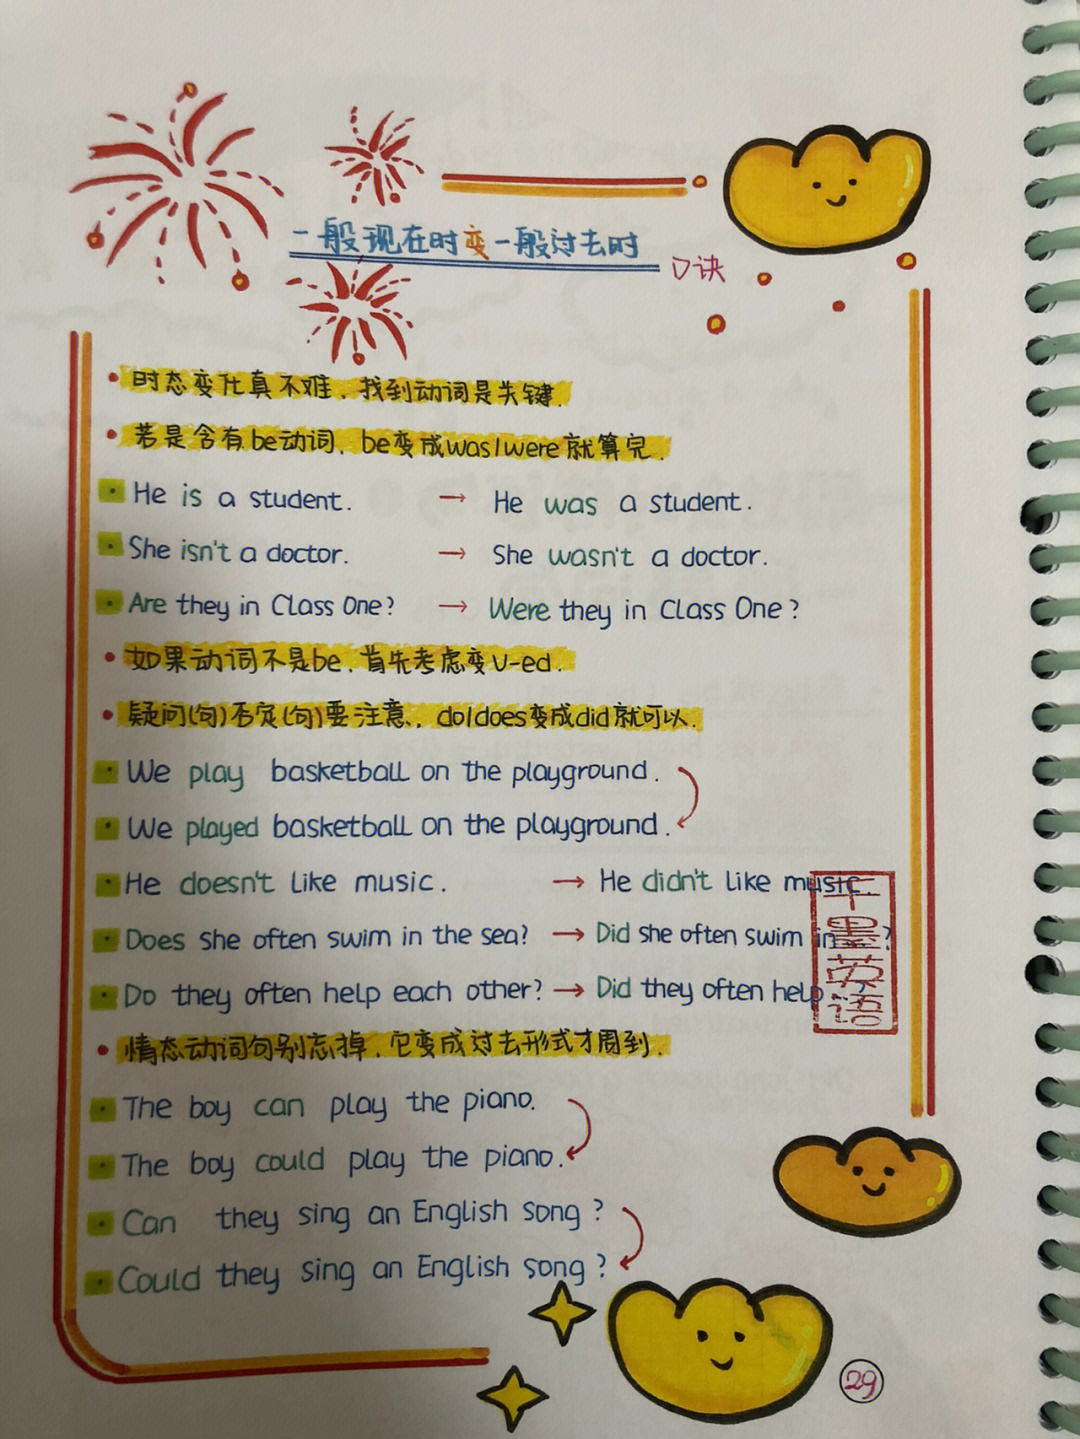 一般现在时变一般过去时
口诀
时态变化真不难,找到动词是关键.
若是含有be动词,be变成was/were就算完.
He is a student. → He was a student.
She isn't a doctor. → She wasn't a doctor.
Are they in Class One? → Were they in Class One?
如果动词不是be,首先考虑变V-ed.
疑问(句)否定(句)要注意,do/does变成did就可以.
We play basketball on the playground.
We played basketball on the playground.
He doesn't like music. → He didn't like music.
Does she often swim in the sea? → Did she often swim in ?
Do they often help each other? → Did they often help
墨英语
情态动词句别忘掉,它变成过去形式才周到.
The boy can play the piano.
The boy could play the piano.
Can they sing an English song?
Could they sing an English song?
29